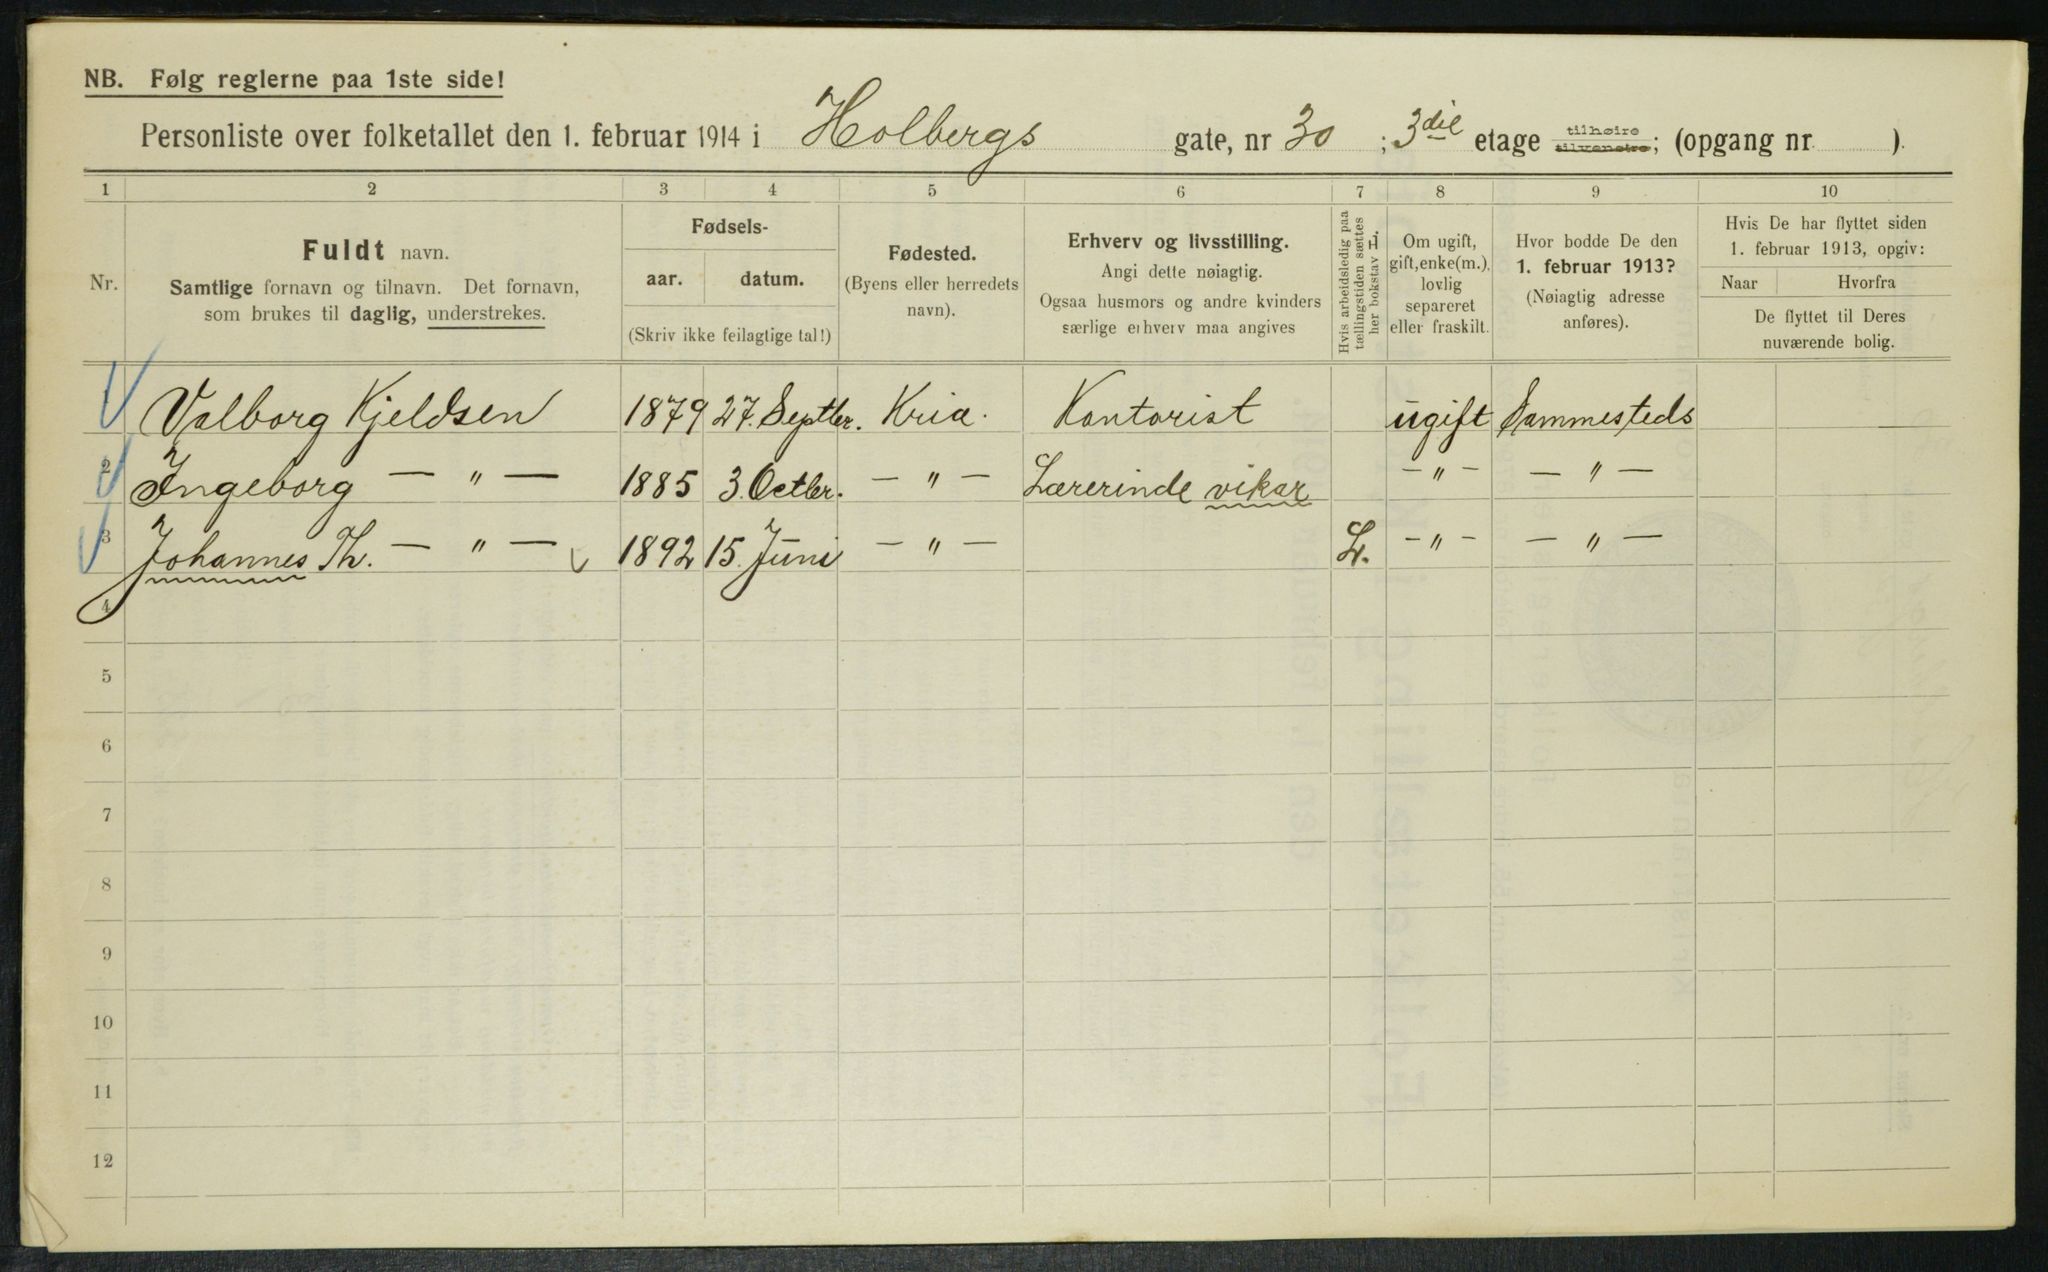 NB. Følg reglerne paa 1ste side!
Personliste over folketallet den 1. februar 1914 i Holbergs gate, nr 30 ; 3die etage tilhøire tilvenstre; (opgang nr. ).
1 2 3 4 5 6 7 8 9 10
Nr.
Fuldt navn.
Samtlige fornavn og tilnavn. Det fornavn,
som brukes til daglig, understrekes.
Fødsels-
aar. datum.
(Skriv ikke feilagtige tal!)
Fødested.
(Byens eller herredets
navn).
Erhverv og livsstilling.
Angi dette nøiagtig.
Ogsaa husmors og andre kvinders
særlige erhverv maa angives
Hvis arbeidsledig paa
tællingstiden sættes
her bokstav L.
Om ugift,
gift, enke(m.),
lovlig
separeret
eller fraskilt.
Hvor bodde De den
1. februar 1913?
(Nøiagtig adresse
anføres).
Hvis De har flyttet siden
1. februar 1913, opgiv:
Naar Hvorfra
De flyttet til Deres
nuværende bolig.
1 Valborg Kjeldsen 1879 27. Septbr. Kria. Kontorist ugift Sammesteds
2 Ingeborg — " — 1885 3. Octbr. — " — Lærerinde vikar — " — — " —
3 Johannes Th. — " — 1892 15. Juni — " — L. — " — — " —
4
5
6
7
8
9
10
11
12